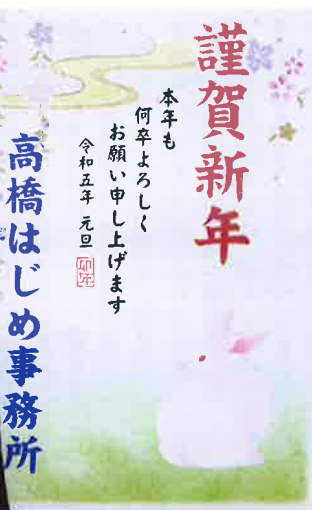 謹賀新年
本年も
何卒よろしく
お願い申し上げます
令和五年 元旦
卯年
高橋はじめ事務所